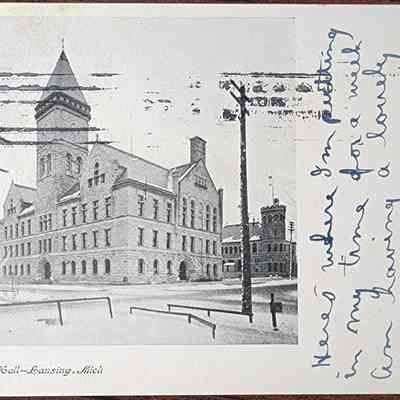 Hall—Lansing, Mich
Here's where I'm putting
in my time for a week
am having a lovely